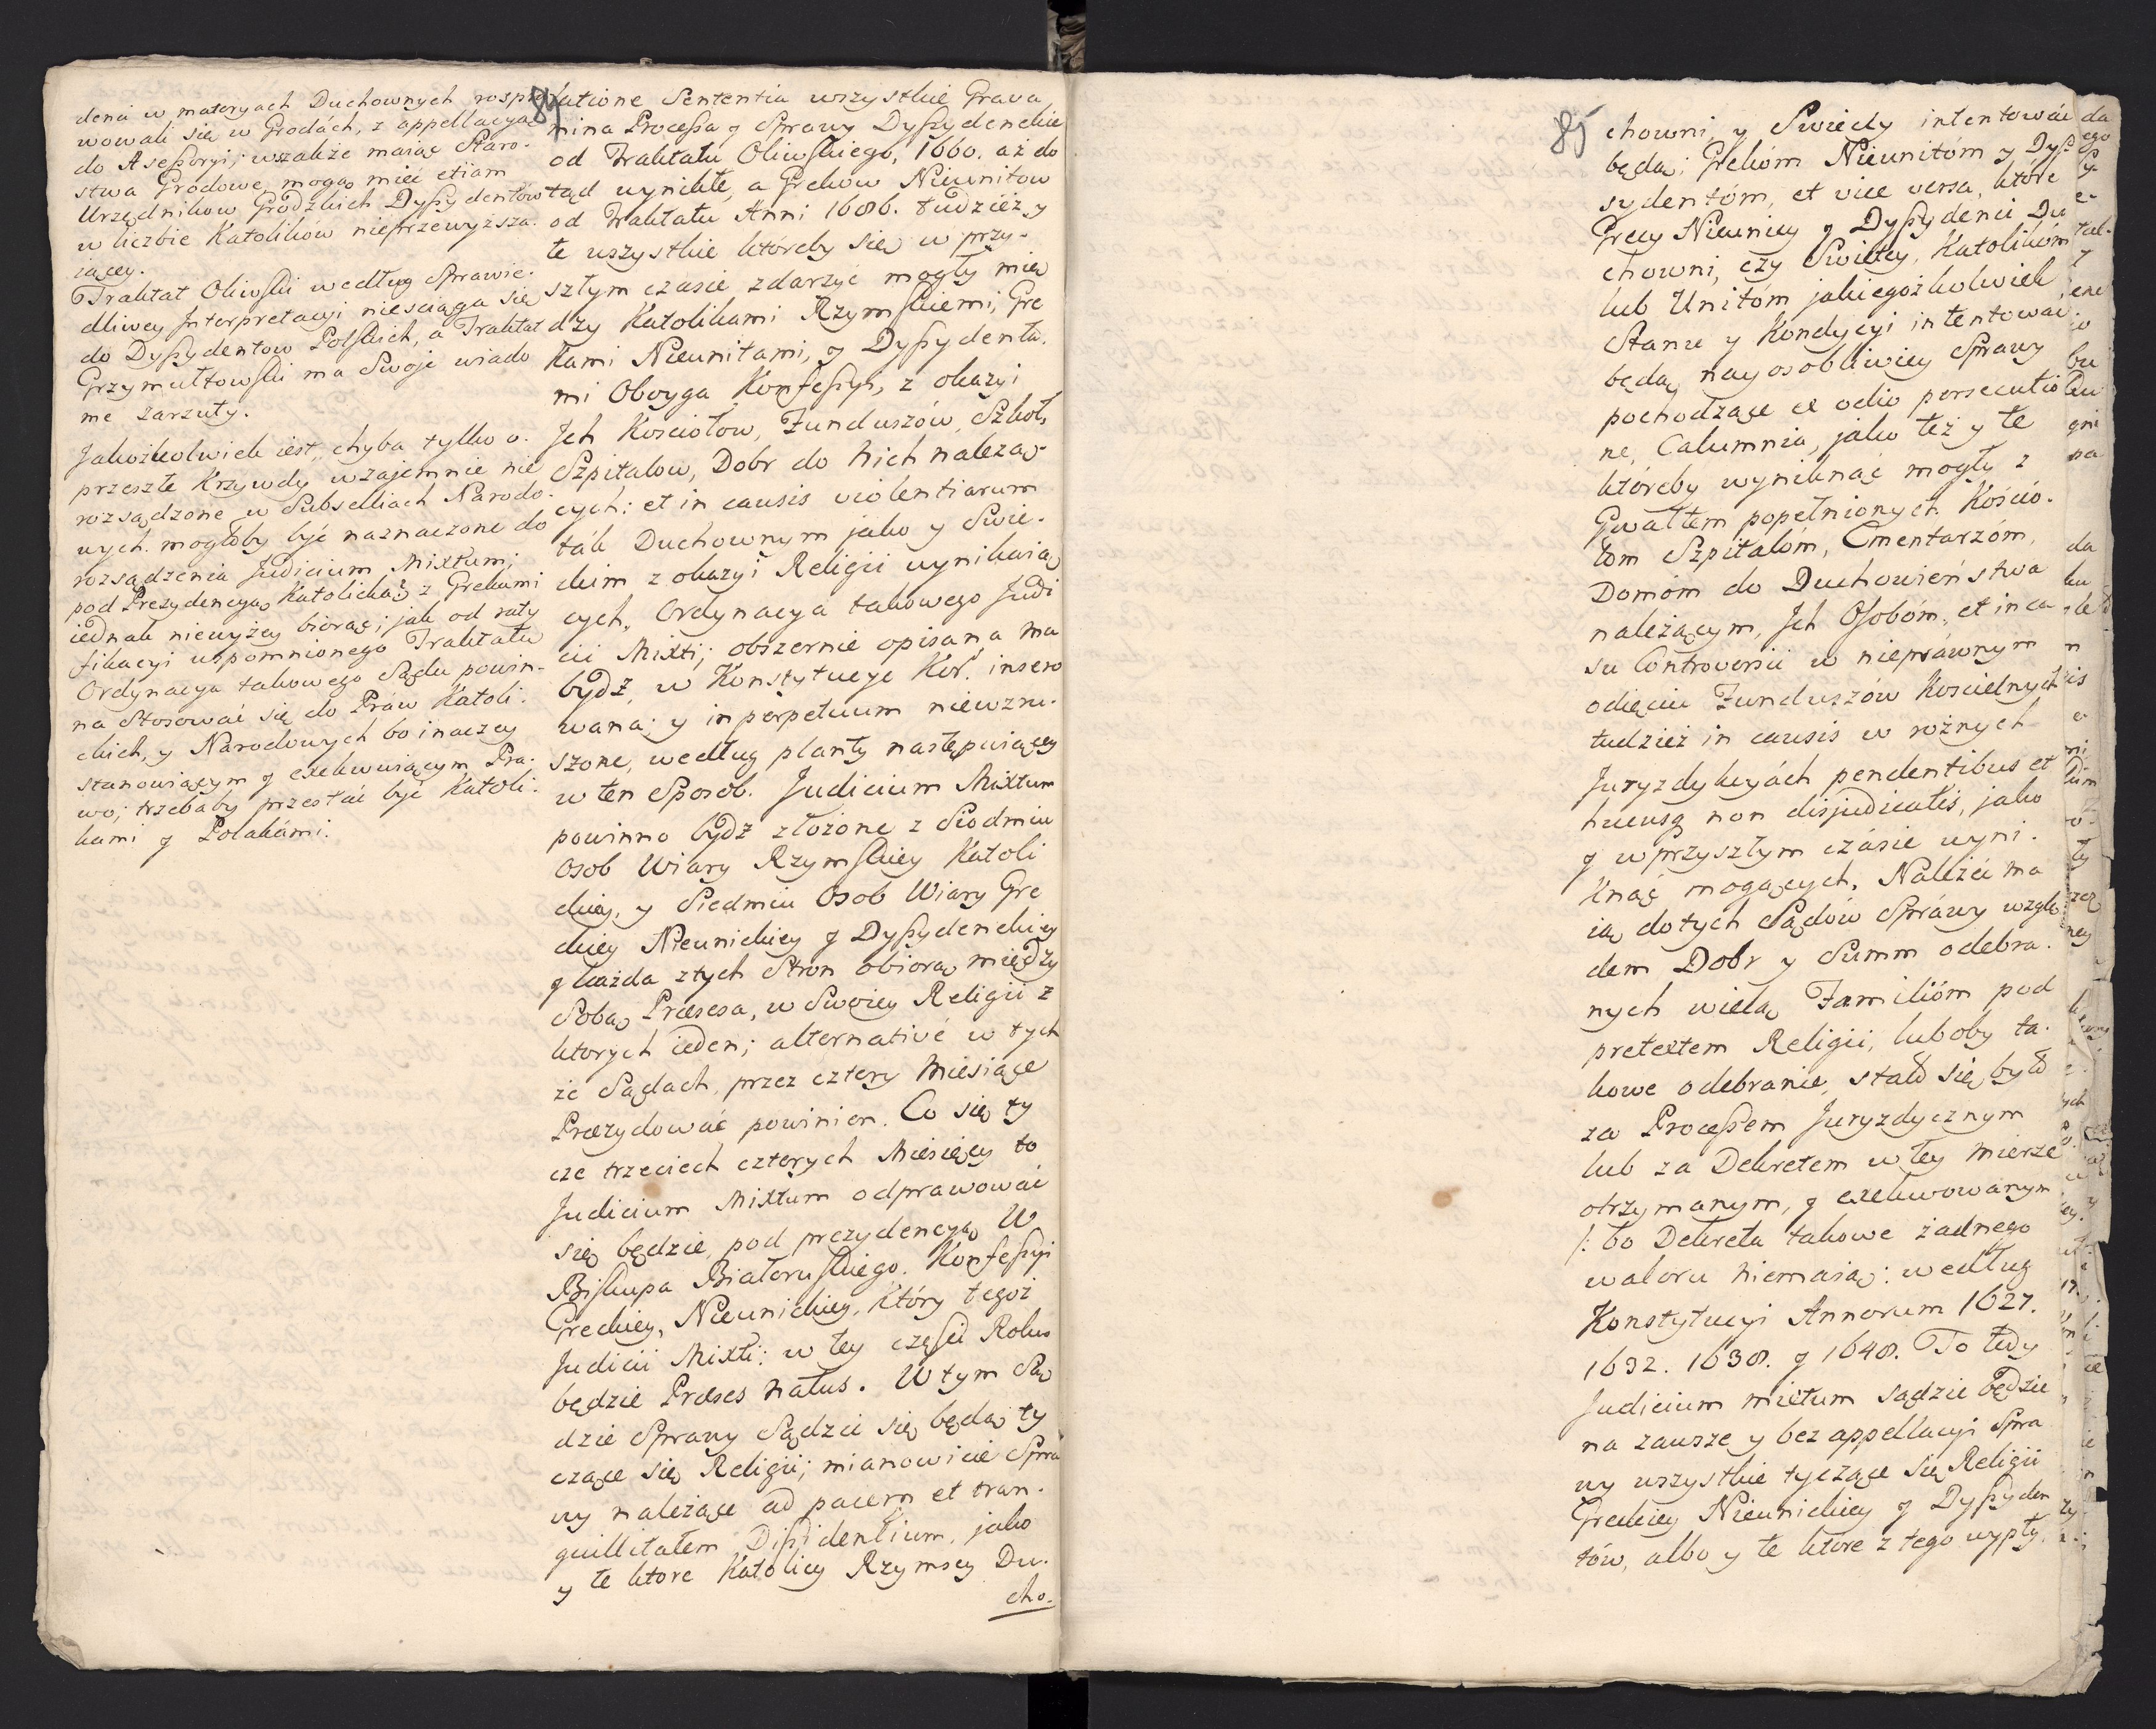 denci w materyach Duchownych rospra
wowali się w Grodách, z appellacyą
do Asessoryi; wszakże maiąc Staro-
stwa Grodowe, mogą mieć etiam
Urzędnikow Grodzkich Dyssydentow
w liczbie Katolikow nieprzewyższa-
iącey.
Traktat Oliwski według Sprawie-
dliwey Interpretacyi niesciąga się
do Dyssydentow Polskich, a Traktat
Grzymułtowski ma Swoje wiado
me zarzuty.
Jakożkolwiek iest, chyba tylko o.
przeszłe Krzywdy wzajemnie nie
rozsądzone w Subselliach Narodo-
wych. mogłoby być naznaczone do
rozsądzenia Judicium Mixtum;
pod Prezydencyą Katolicką z Grekami
iednak niewyżey biorąc; jak od raty
fikacyi wspomnionego Traktatu
Ordynacya takowego Sądu powin-
na Stosować się do Práw Katoli-
ckich, y Narodowych bo inaczey
stanowiącym y exekwuiącym Pra-
wo; trzebaby przestać być Katoli-
kami y Polakámi.
84
latione Sententia wszystkie Grava
mina Processa y Sprawy Dyssydenckie
od Traktatu Oliwskiego, 1660. aż do
tąd wynikłe, a Grekow Nieunitow
od Traktatu Anni 1686. tudzież y
te wszystkie któreby się w przy-
szłym czasie zdarzyć mogły mię
dzy Katolikami Rzymskiemi, Gre
kami Nieunitami, y Dyssydenta-
mi Oboyga Konfessyi, z okazyi
Jch Kosciołow, Funduszów, Szkoł,
Szpitalow, Dobr do Nich należą-
cych: et in causis violentiarum
ták Duchownym jako y Swie-
ckim z okazyi Religii wynikaią
cych, Ordynacya takowego Judi
cii Mixti; obszernie opisana ma
bydź, w Konstytucye Kor. insero
wana; y in perpetuum niewzru-
szone, według planty następuiącey
w ten Sposob. Judicium Mixtum
powinno bydź złożone z Siodmiu
Osob Wiary Rzymskiey Katoli
ckiey, y Siedmiu Osob Wiary Gre
ckiey Nieunickiey y Dyssydenckiey
y każda z tych Stron obiorą między
Sobą Præsesa, w Swoiey Religii z
ktorych ieden; alternativé w tych
że Sądach, przez cztery Miesiące
Præzydować powinien. Co się ty
cze trzeciech czterych Miesięcy to
Judicium Mixtum odprawować
się będzie, pod prezydencyą W.
Biskupa Białoruskiego. Konfessyi
Greckiey, Nieunickiey, Który tegoż
Judicii Mixti: w tey częsci Roku
będzie Præses Natus. W tym Są
dzie Sprawy Sądzić się będą ty
czące się Religii; mianowicie Spra
wy należące ad pacem et tran-
quillitatem Dissidentium, jako
y te ktore Katolicy Rzymscy Du-
cho-
85
chowni, y Swieccy intentować
będą; Grekóm Nieunitóm y Dys-
sydentóm, et vice versa, które
Grecy Nieunicy y Dyssydenci Du
chowni, czy Swieccy, Katolikóm
lub Unitóm jakiegożkolwiek
Stanu y Kondycyi intentować
będą, nayosobliwiey Sprawy
pochodzące ex odio persecutio
ne, Calumnia, jako też y te
któreby wyniknąć mogły z
Gwałtem popełnionych Kościo-
łom Szpitalóm, Cmentarzóm,
Domóm do Duchowieństwa
należącym, Jch Osobóm, et in ca
su Controversii w nieprawnym
odięciu Funduszów Koscielnych
tudzież in causis w rożnych
Juryzdykcyách pendentibus et
hucusq non disjudicatis, jako
y w przyszłym czásie wyni-
knąć mogących. Należeć ma
ią do tych Sądów Spráwy wzglę
dem Dobr y Summ odebra-
nych wielą Familióm pod
pretextem Religii, luboby ta-
kowe odebranie, stało się było
za Processem Juryzdycznym
lub za Dekretem w tey mierze
otrzymanym, y exekwowanym
/: bo Dekreta takowe żadnego
waloru niemaią: według
Konstytucyi Annorum 1627.
1632. 1638. y 1648. To tedy
Judicium mixtum sądzić będzie
na zawsze y bez appellacyi Spra
wy wszystkie tyczące się Religii
Greckiey Nieunickiey y Dyssyden
tów, albo y te ktore z tego wypły.